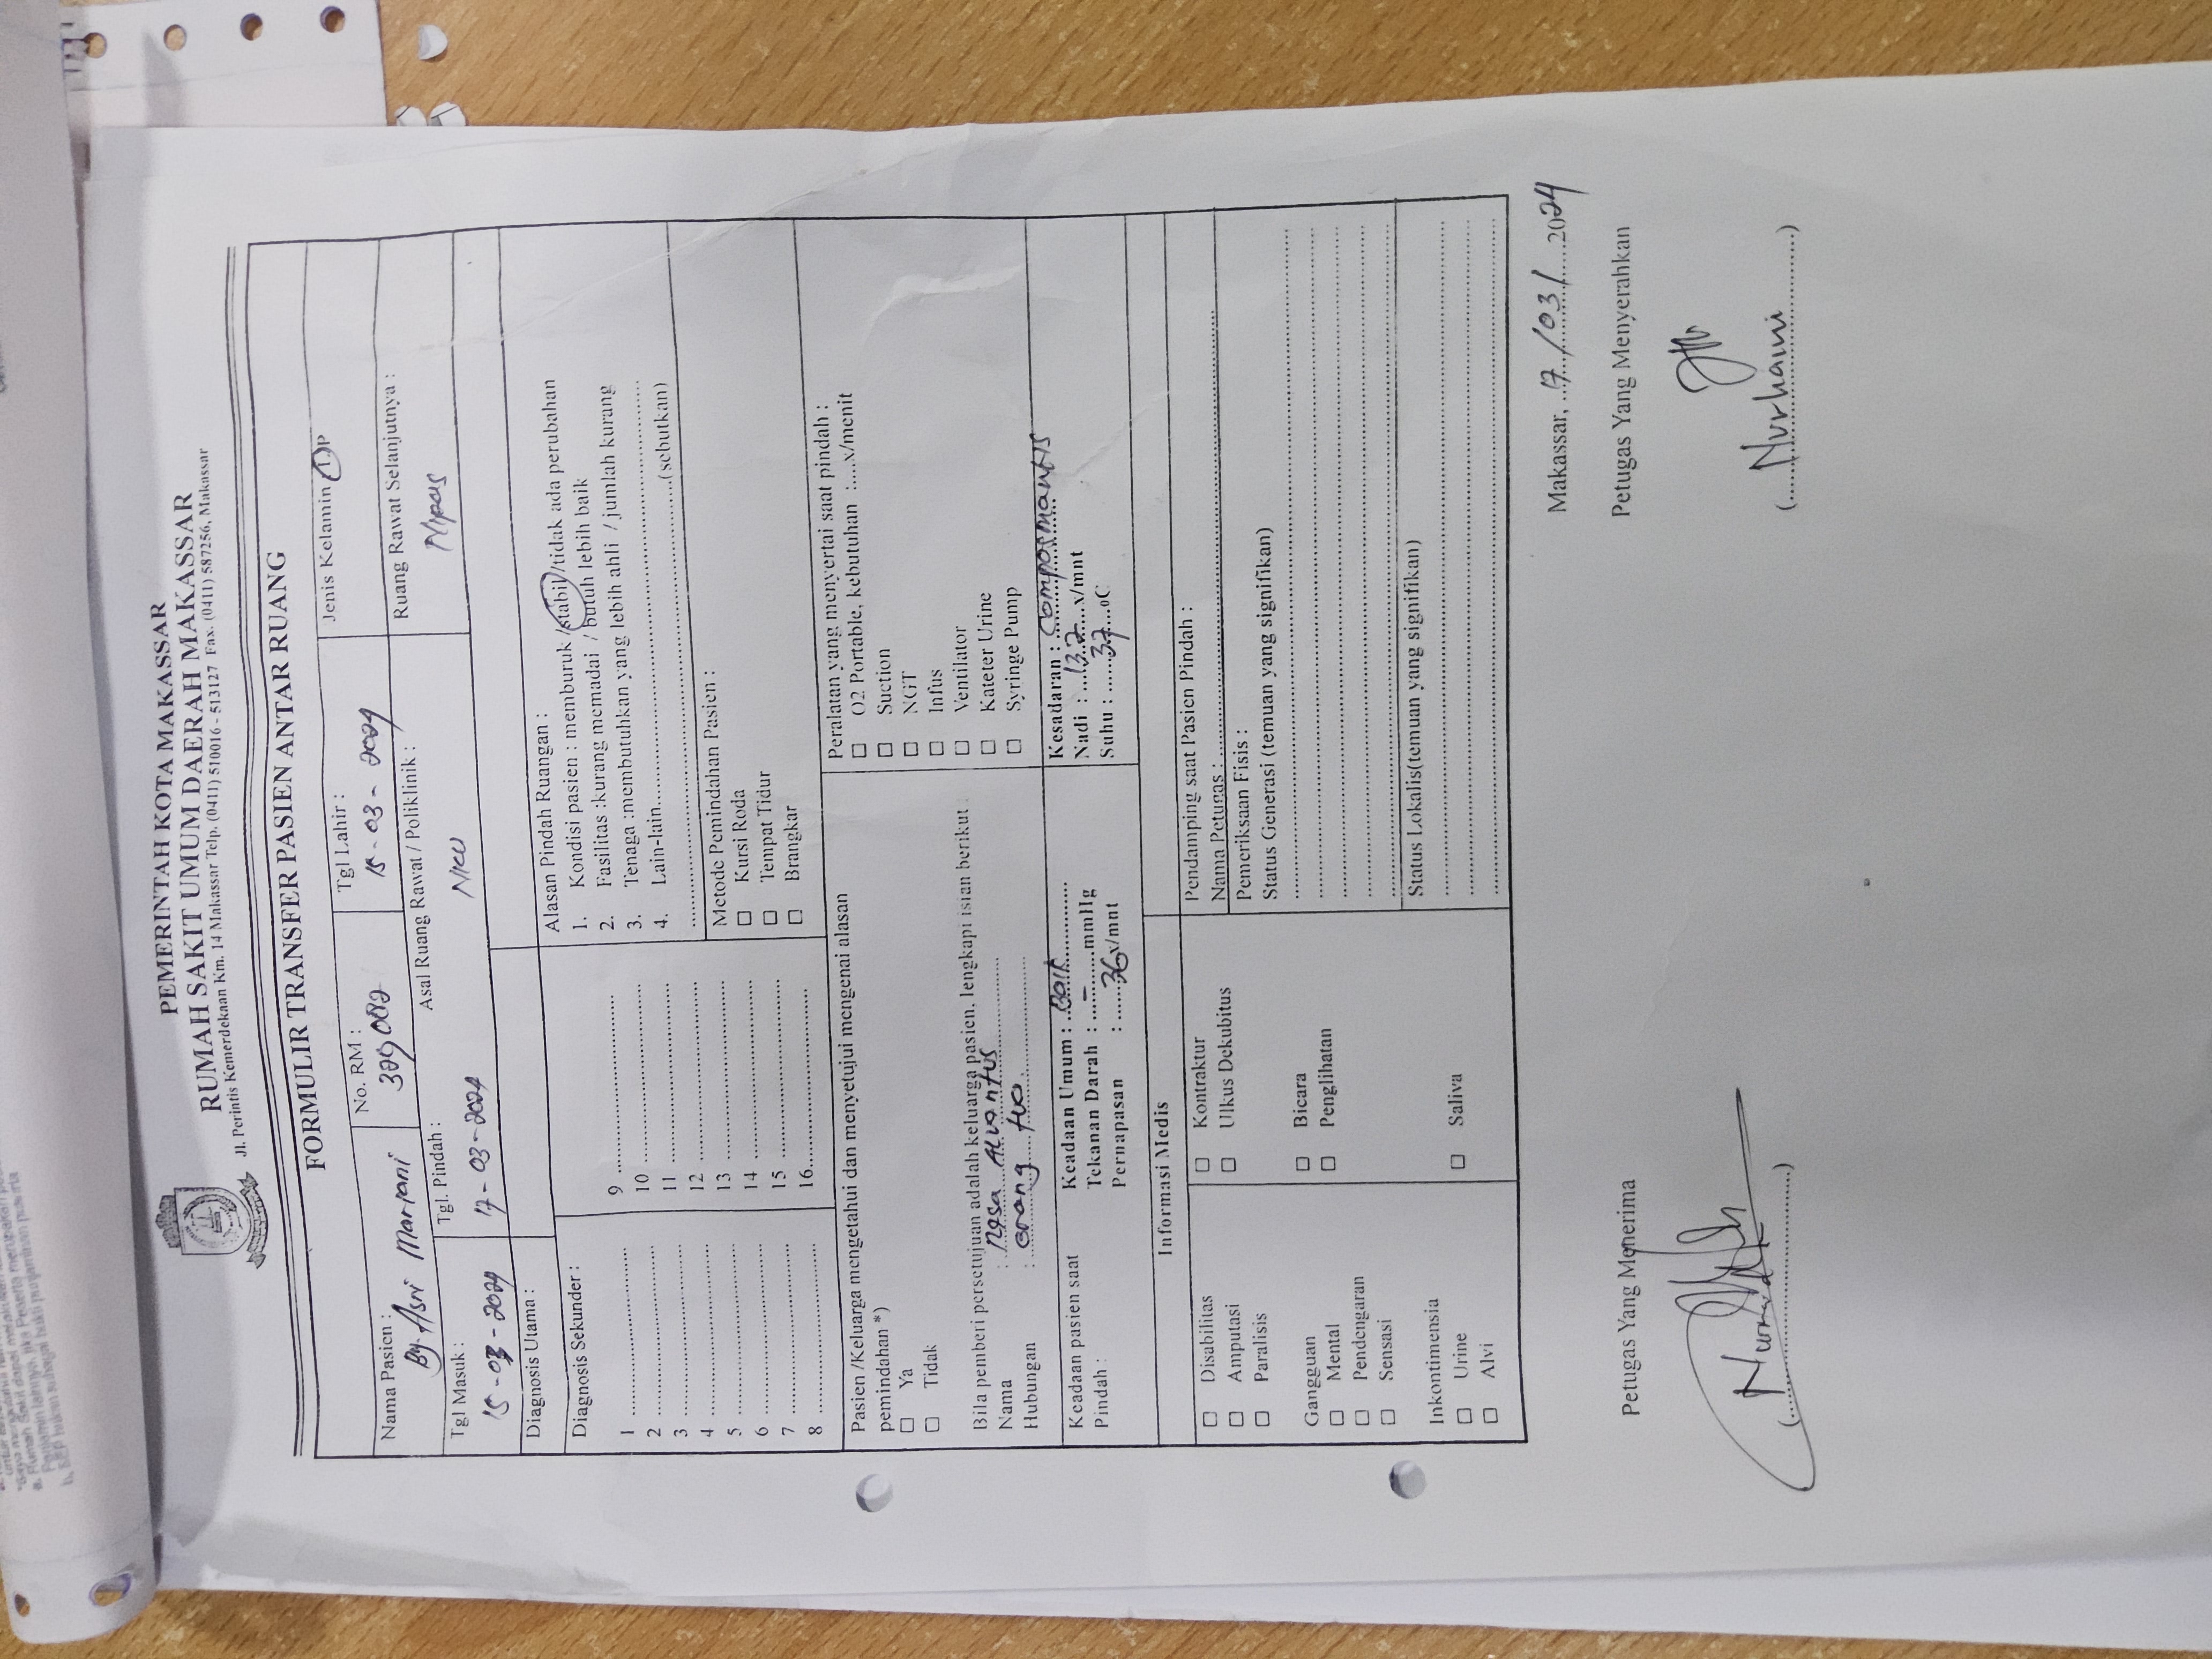 PEMERINTAH KOTA MAKASSAR
RUMAH SAKIT UMUM DAERAH MAKASSAR
Jl. Perintis Kemerdekaan Km. 14 Makassar Telp. (0411) 510016 - 513127 Fax. (0411) 587256, Makassar
FORMULIR TRANSFER PASIEN ANTAR RUANG
Nama Pasien : By. Asri Mariani
No. RM :
Tgl Lahir : 15-03-2024
Jenis Kelamin L/P
Tgl Masuk : 15-03-2024
Tgl. Pindah : 17-03-2024
Asal Ruang Rawat / Poliklinik : Nicu
Ruang Rawat Selanjutnya : Nipas
Diagnosis Utama :
Diagnosis Sekunder :
1 ..........
2 ..........
3 ..........
4 ..........
5 ..........
6 ..........
7 ..........
8 ..........
9 ..........
10 ..........
11 ..........
12 ..........
13 ..........
14 ..........
15 ..........
16..........
Alasan Pindah Ruangan :
1. Kondisi pasien : memburuk /stabil/tidak ada perubahan
2. Fasilitas :kurang memadai / butuh lebih baik
3. Tenaga :membutuhkan yang lebih ahli / jumlah kurang
4. Lain-lain..........
..........(sebutkan)
Metode Pemindahan Pasien :
□ Kursi Roda
□ Tempat Tidur
□ Brangkar
Pasien /Keluarga mengetahui dan menyetujui mengenai alasan
pemindahan *)
□ Ya
□ Tidak
Bila pemberi persetujuan adalah keluarga pasien, lengkapi isian berikut :
Nama :
Hubungan : orang tua
Peralatan yang menyertai saat pindah :
□ O2 Portable, kebutuhan :.....x/menit
□ Suction
□ NGT
□ Infus
□ Ventilator
□ Kateter Urine
□ Syringe Pump
Keadaan pasien saat
Pindah :
Keadaan Umum : Baik
Tekanan Darah : - mmHg
Pernapasan : 36 x/mnt
Kesadaran : Composmentis
Nadi : 132 x/mnt
Suhu : 37 oC
Informasi Medis
□ Disabilitas
□ Amputasi
□ Paralisis
□ Kontraktur
□ Ulkus Dekubitus
Gangguan
□ Mental
□ Pendengaran
□ Sensasi
□ Bicara
□ Penglihatan
Inkontimensia
□ Urine
□ Alvi
□ Saliva
Pendamping saat Pasien Pindah :
Nama Petugas : ..........
Pemeriksaan Fisis :
Status Generasi (temuan yang signifikan)
Status Lokalis(temuan yang signifikan)
Makassar, 17/03/2024
Petugas Yang Menerima
Petugas Yang Menyerahkan
(Nurhaini)